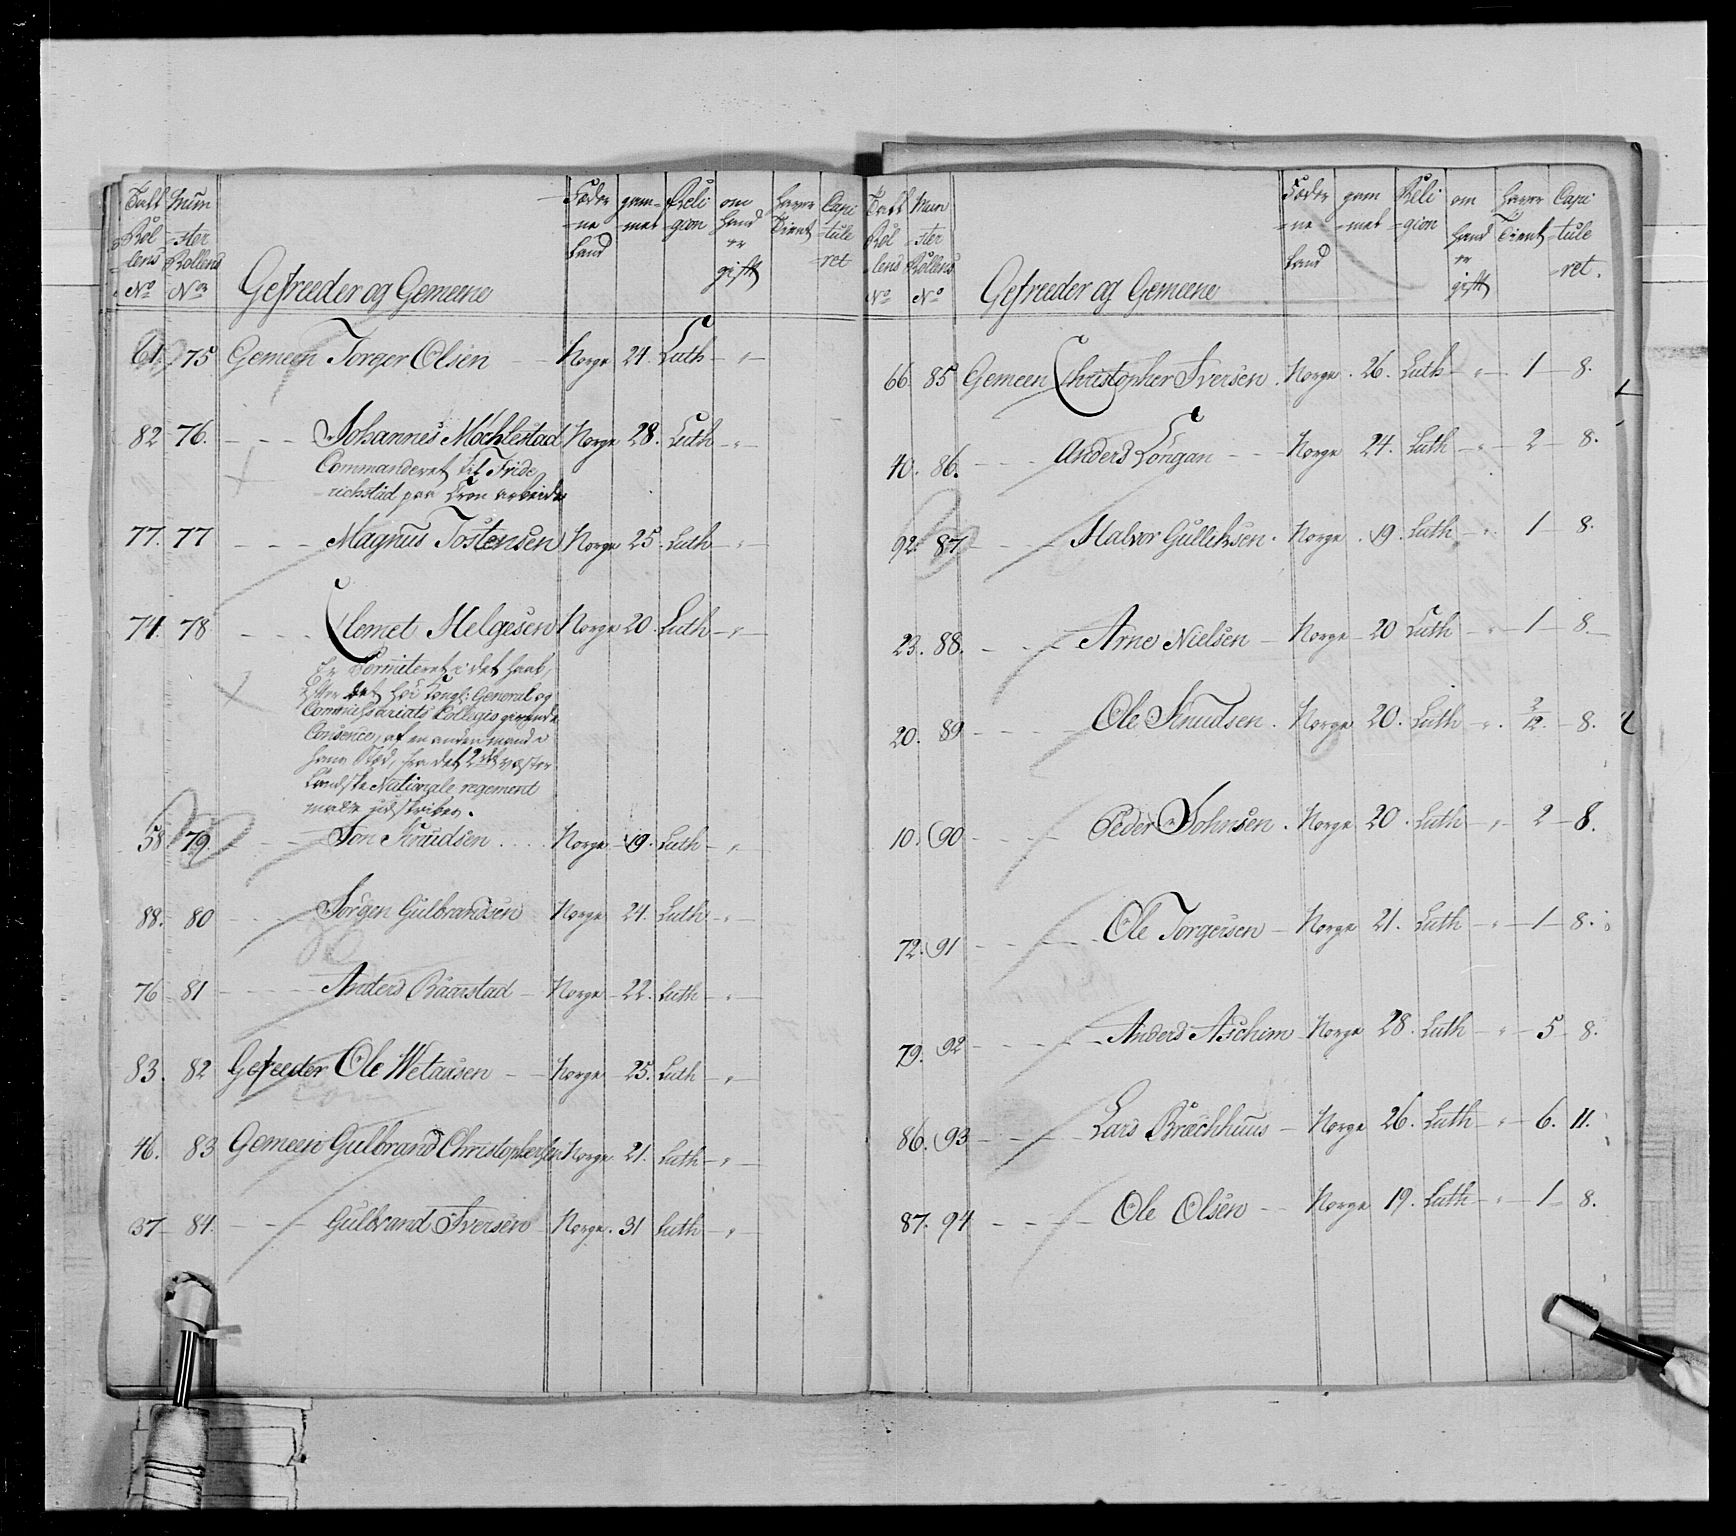 Tall Mun Føder gam- Reli om haver Capi
Rol -ster -ne -met gion hand Tient -tule
-lens Rollens Land er -ret
No No Gefreeder og Gemeene gift
61. 75 Gemeen Torger Olsen Norge 24. Luth - " -
82 76. - - - Johannes Mochlestad Norge 28. Luth - " -
Commanderet til Fride
-richstad paa Cron arbeide
77. 77 - - - Magnus Tostensen Norge 25. Luth - " -
74. 78 - - - Clemet Helgesen Norge 20. Luth - " -
Er Permiteret i det haab,
efter det høi Kongl: General og
Commissariats Collegis givende
Consence, at en anden mand i
hans Stød, fra det 2det Vester
Landske Nationale regement
maae udskrives.
58 79 - - Jon Knudsen . . . Norge - 19. Luth - " -
88. 80 - - - Jørgen Gulbrandsen Norge 24. Luth - " -
76 - 81 - - - Anders Baarstad - Norge - 22. Luth - " -
83. 82 Gefreeder Ole Wetausen - - Norge 25. Luth - " -
46. 83 Gemeen Gulbrand Christophersen Norge 21. Luth - " -
37 - 84. - - - Gulbrand Iversen - Norge. 31 Luth - " -
Tall Mun Føder gam Reli om haver Capi
Rol -ster -ne -met -gion hand Tient -tule
-lens Rollens Land er -ret.
No No Gefreeder og Gemeene gift
66. 85 Gemeen Christopher Iversen . Norge . 26. Luth - " - 1 - 8.
40. 86. - - - Anders Longan - - Norge 24. Luth - " - 2 - 8.
92. 87 - - - Halvor Gulliksen . Norge . 19. Luth - " - 1 - 8.
23. 88. - - - Arne Nielsen - Norge - 20 Luth - " - 1 - 8.
20. 89 - - - - Ole Knudsen . Norge 20. Luth - " . 2/12. - 8.
10. 90 - - - - Peder Johnsen . Norge 20. Luth - " - 2 - 8.
72. 91 - - - - Ole Torgersen - Norge 21. Luth - " - 1 - 8.
79. 92 - - - - Anders Aschim - Norge 28. Luth - " - 5 - 8.
86. 93 - - - - Lars Brachhuus - Norge 26. Luth - " - 6. 11.
87. 94 - - - - Ole Olsen - - Norge 19. Luth - " - 1 - 8.